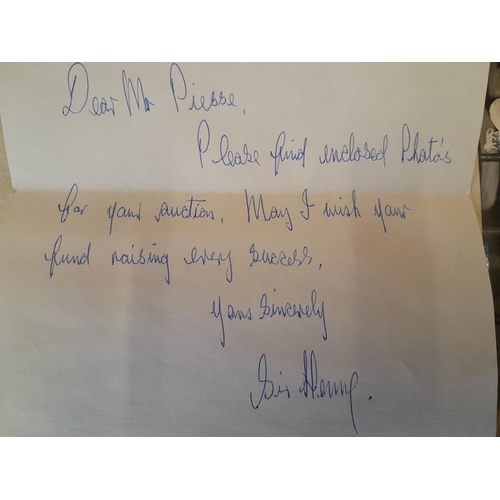 Dear Mr Piesse,
Please find enclosed Photo's
for your auction. May I wish your
fund raising every success.
Yours Sincerely
Sir Henry.